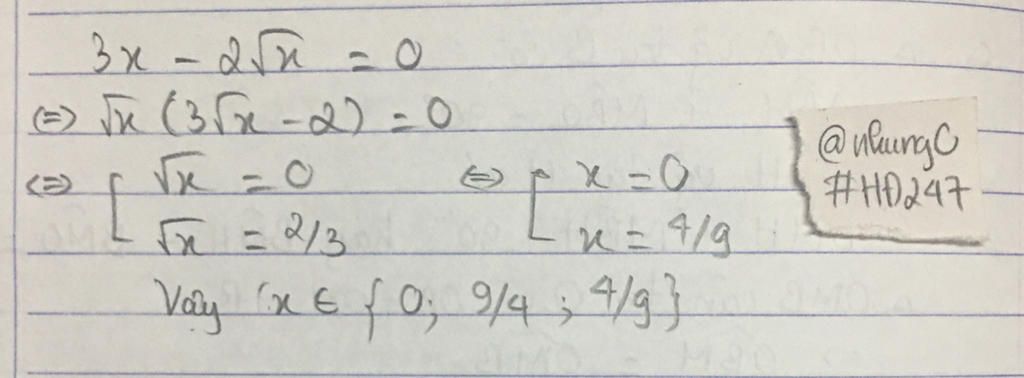 3x - 2√x = 0
⇔ √x (3√x - 2) = 0
⇔ [ √x = 0 ⇔ [ x = 0
√x = 2/3 x = 4/9
Vậy x ∈ { 0; 9/4 ; 4/9 }
@nhungC
#HD247